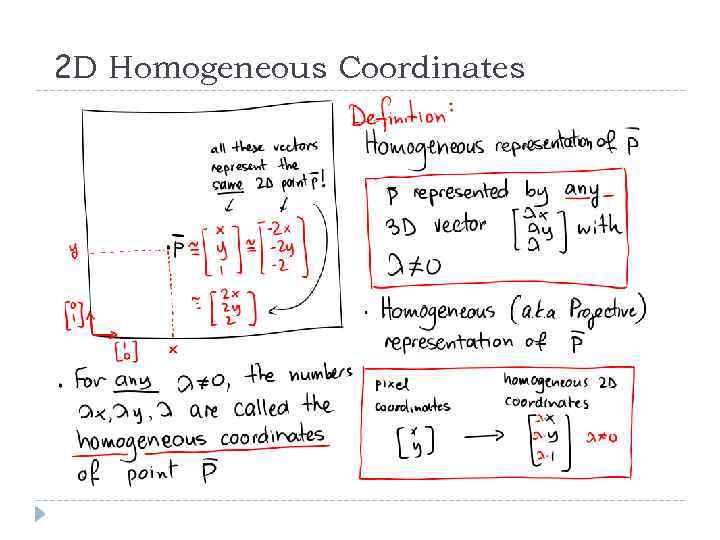 2D Homogeneous Coordinates
all these vectors
represent the
same 2D point p̄!
y
• p̄ ≅ [x y 1] ≅ [-2x -2y -2]
≅ [2x 2y 2]
[0 1]
[1 0]
x
Definition:
Homogeneous representation of p̄
p̄ represented by any
3D vector [λx λy λ] with
λ≠0
• Homogeneous (aka Projective)
representation of p̄
• For any λ≠0, the numbers
λx, λy, λ are called the
homogeneous coordinates
of point p̄
pixel
coordinates
[x y]
→
homogeneous 2D
coordinates
[λ·x λ·y λ·1] λ≠0